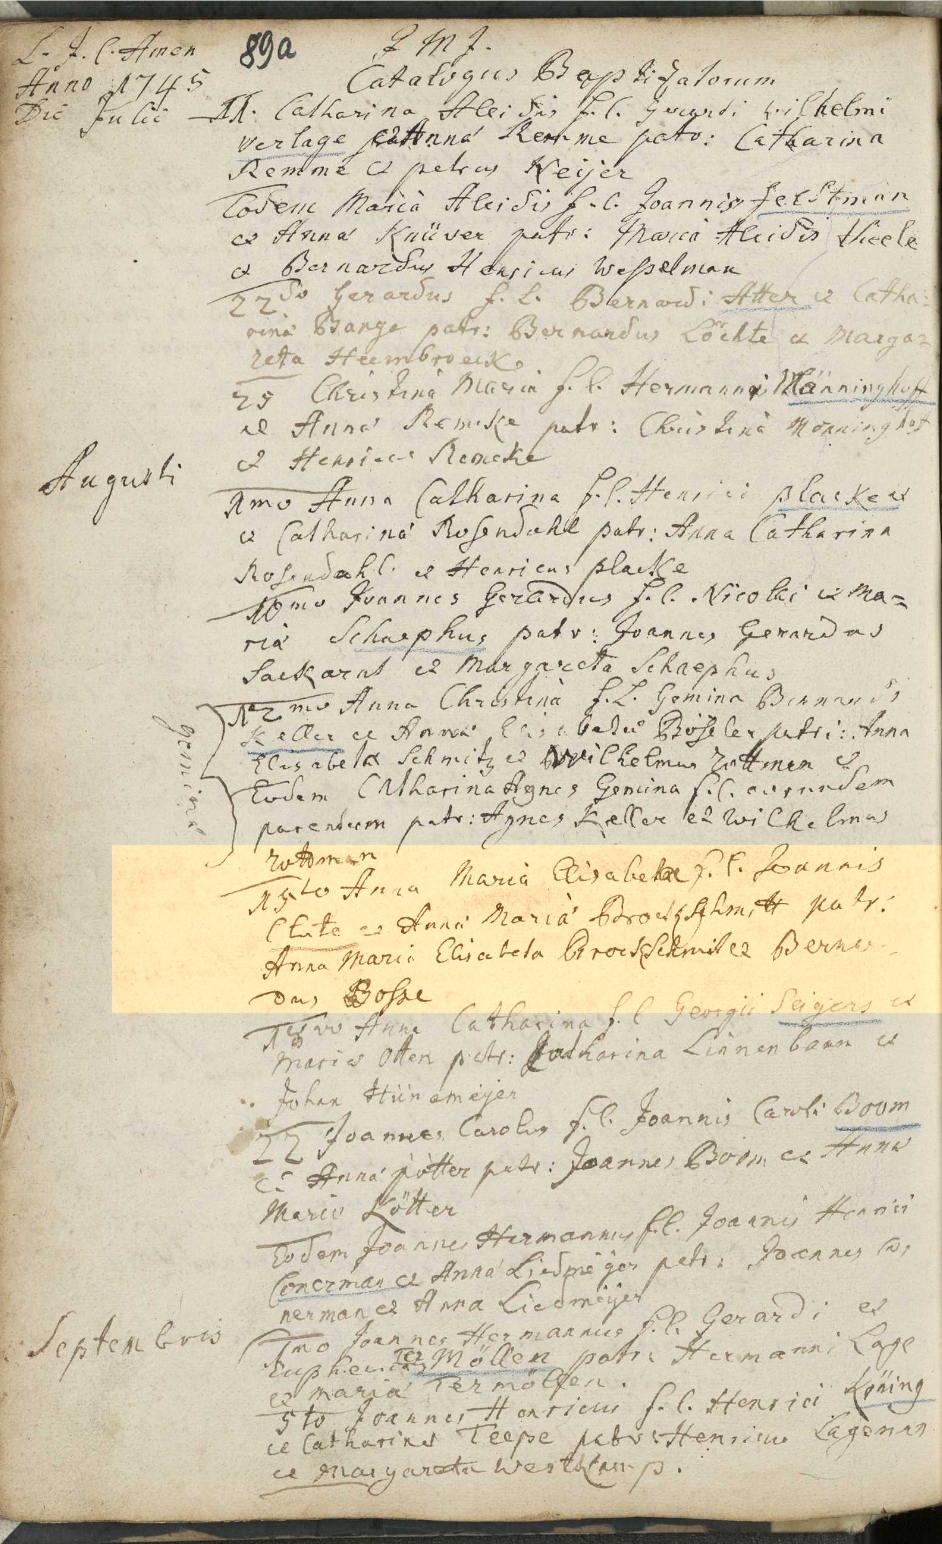 L. J. C. Amen
89a
J M J.
Anno 1745
Catalogus Baptizatorum
Die Julii
11. Catharina Aleidis f.l. Gerardi wilhelmi
verlage et Anna Remme patr: Catharina
Remme et petrus Meijer
Eodem Maria Aleidis f.l. Joannis
et Anna Knüver patr: Maria Aleidis thiele
et Bernardus Henricus Wesselman
22do Gerardus f.l. Bernardi Atter et Catha:
rina Bange patr: Bernardus Löchte et Marga=
reta Heembroeck
25 Christina Maria f.l. Hermanni Männinghoff
et Anna Remke patr: Christina Mönninghof
et Henricus Remcke
Augusti
1mo Anna Catharina f.l. Henrici placke
et Catharina Rosendahl patr: Anna Catharina
Rosendahl et Henricus placke
10mo Joannes Gerardus f.l. Nicolai et Ma=
ria Schaephus patr: Joannes Gerardus
Sackarnt et Margareta Schaephus
gemina
12mo Anna Christina f.l. Gemina Bernardi
Keller et Anna Elisabeta Bösseler patri: Anna
Elisabeta Schmitz et Wilhelmus rottman et
Eodem Catharina Agnes Gemina f.l. eorundem
parentum patr: Agnes Keller et Wilhelmus
rottman
15to Anna Maria Elisabeta f.l. Joannis
et Anna Maria Brockschmitt patr:
Anna Maria Elisabeta Brockschmit et Bernar-
dus Bosse
18vo Anna Catharina f.l. Georgii Seigers et
Maria Otten patr: Catharina Linnenbaum et
Johan Hünemeijer
22 Joannes Carolus f.l. Joannis Caroli Boom
et Anna potter patr: Joannes Boom et Anna
Maria Kötter
Eodem Joannes Hermannus f.l. Joannis Henrici
Conerman et Anna Liedmeijer patr: Joannes Co
nerman et Anna Liedmeijer
Septembris
1mo Joannes Hermannus f.l. Gerardi et
Ter Möllen patr: Hermanni Lage
et maria Termöllen.
5to Joannes Henricus f.l. Henrici Köning
et Catharina Teepe patr: Henricus Lageman
et Margareta Westkamp.